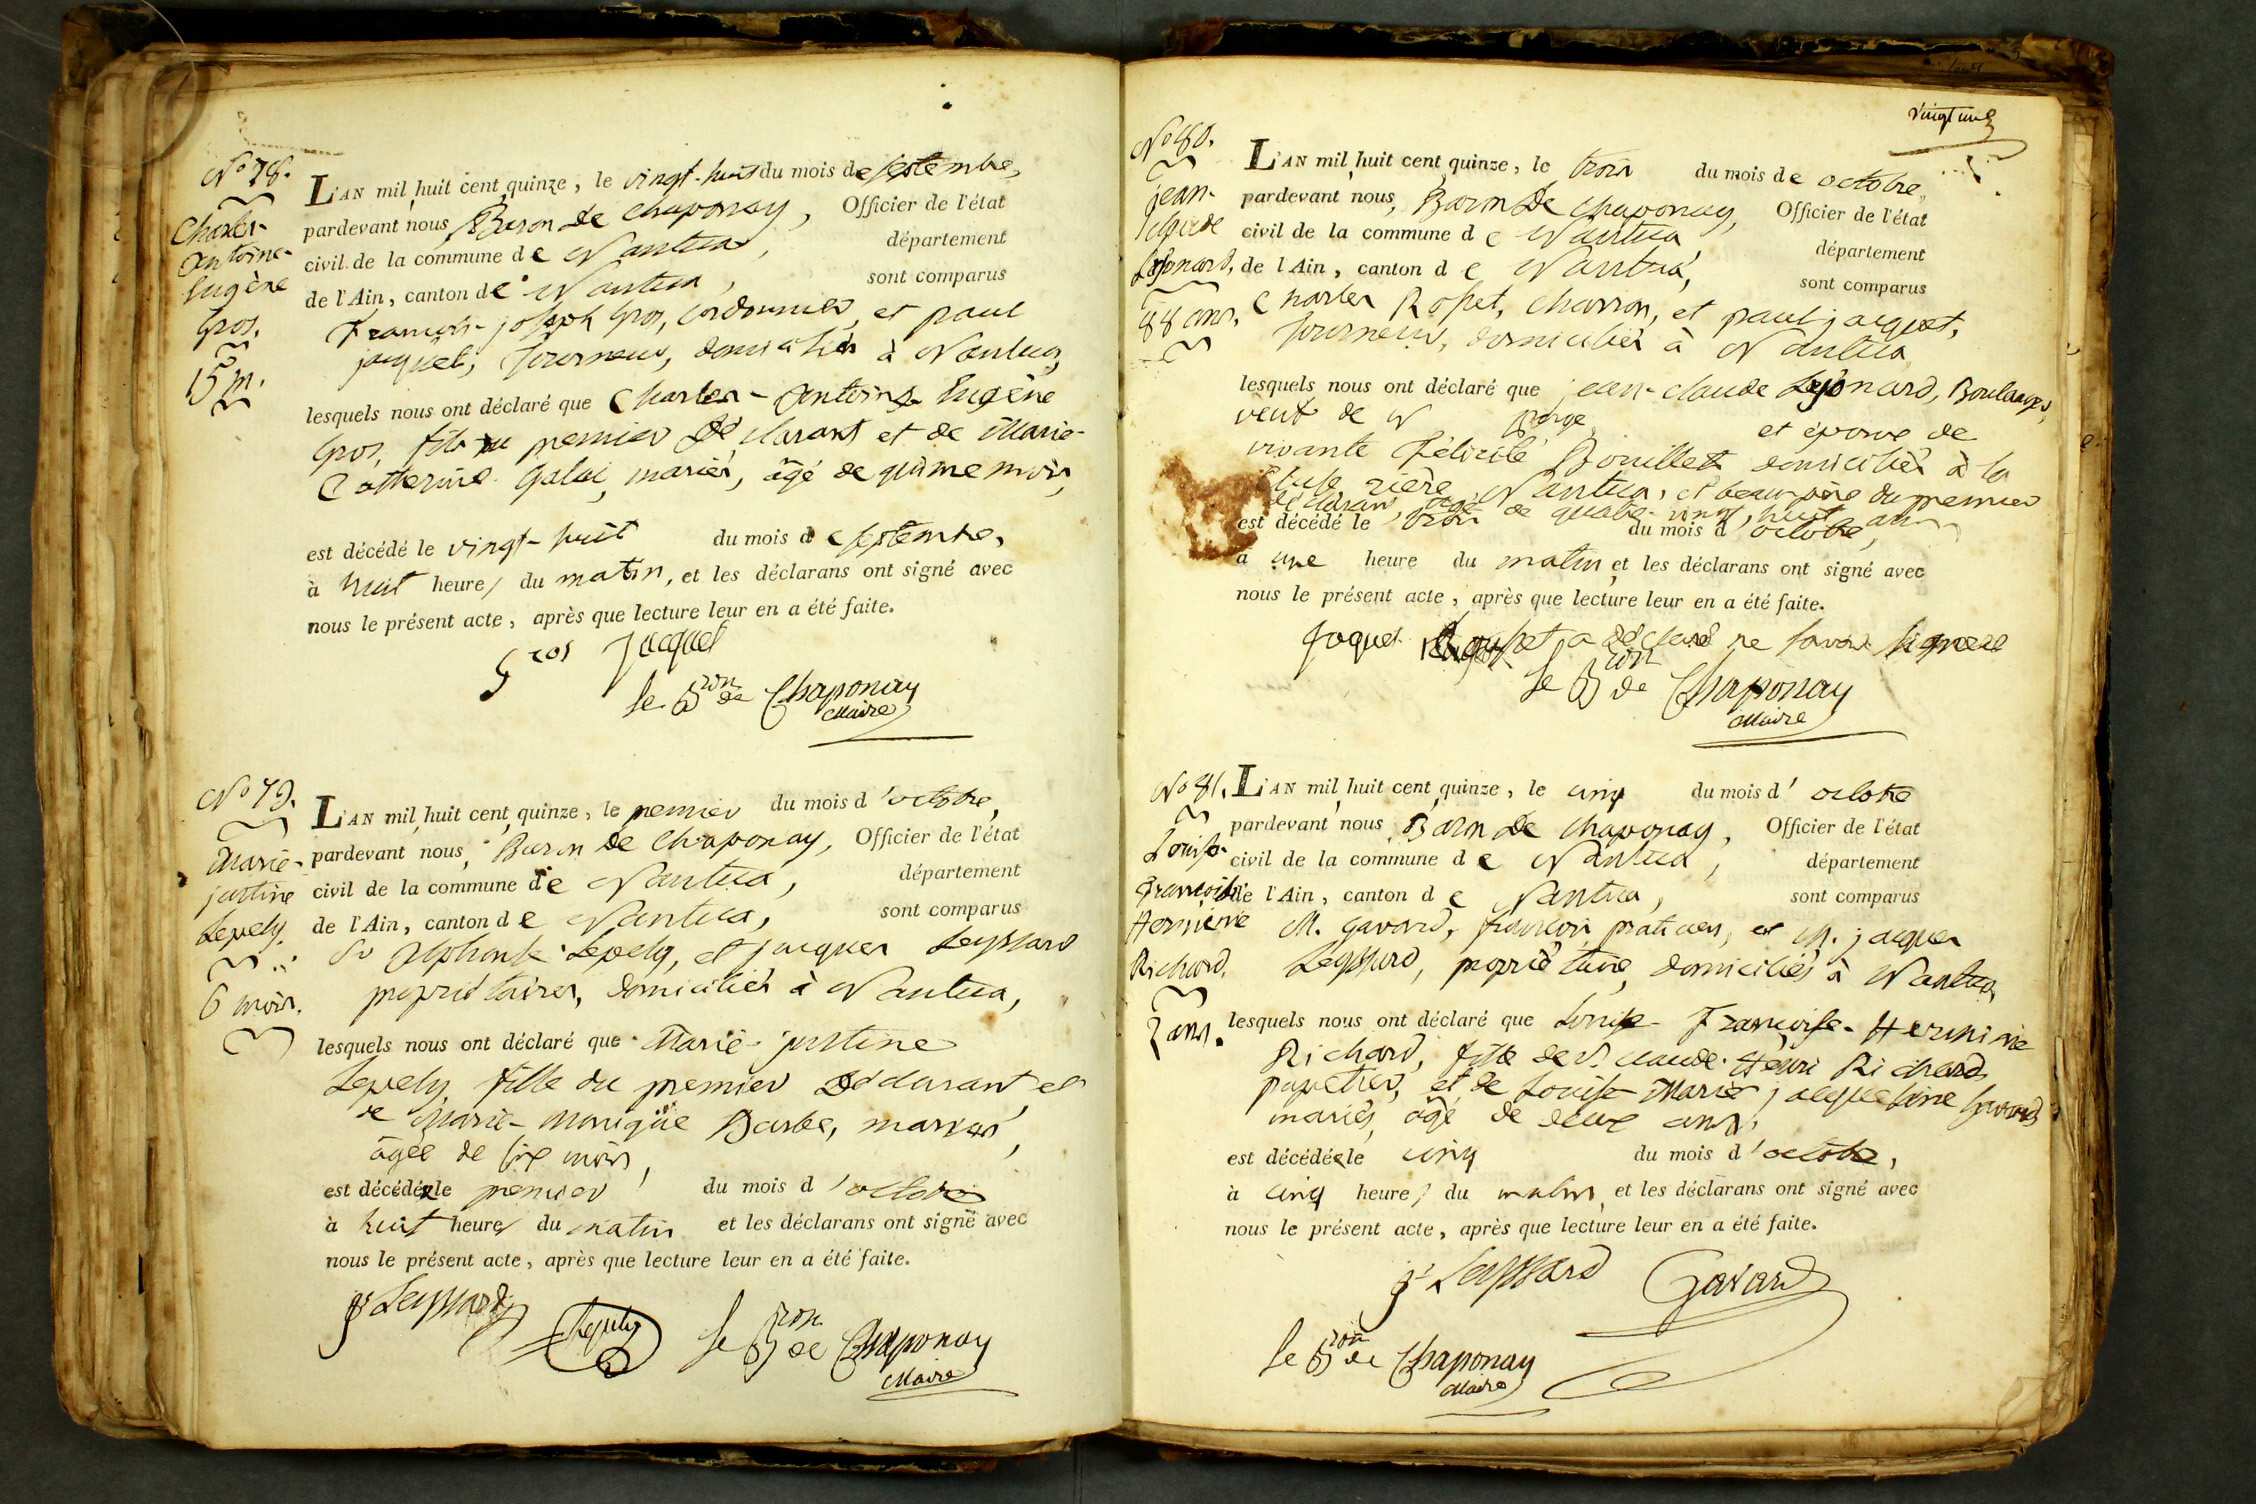 No 78.
Charles-
Antoine-
Eugène
Gros.
15 m.
L'AN mil huit cent quinze, le vingt-huit du mois de septembre,
pardevant nous, Baron de Chaponay, Officier de l'état
civil de la commune de Nantua, département
de l'Ain, canton de Nantua, sont comparus
François-joseph Gros, cordonnier, et paul
jacquet, Tourneur, domiciliés à Nantua,
lesquels nous ont déclaré que Charles-Antoine Eugène
Gros, fils du premier déclarant et de Marie-
Catherine Galai, mariés, âgé de quinze mois,
est décédé le vingt-huit du mois de septembre,
à huit heures du matin, et les déclarans ont signé avec
nous le présent acte, après que lecture leur en a été faite.
Gros Jacquet
le Bron de Chaponay
Maire
No 79.
Marie-
justine
6 mois.
L'AN mil huit cent quinze, le premier du mois d'octobre,
pardevant nous, Baron de Chaponay, Officier de l'état
civil de la commune de Nantua, département
de l'Ain, canton de Nantua, sont comparus
Sr Alphonse et jacques Leyssard
propriétaires, domiciliés à Nantua,
lesquels nous ont déclaré que Marie-justine
fille du premier déclarant et
de Marie-Monique Barbe, mariés,
âgée de six mois,
est décédée le premier du mois d'octobre
à huit heures du matin et les déclarans ont signé avec
nous le présent acte, après que lecture leur en a été faite.
Leyssard
le Bron de Chaponay
Maire
vingt une
No 80.
jean-
claude
88 ans.
L'AN mil huit cent quinze, le trois du mois de octobre,
pardevant nous, Baron de Chaponay, Officier de l'état
civil de la commune de Nantua, département
de l'Ain, canton de Nantua, sont comparus
Charles Rosset, charron, et paul jacquet,
Tourneur, domiciliés à Nantua
lesquels nous ont déclaré que jean-claude Boulanger,
veuf de N et époux de
vivante Félicité Bouillet domiciliés à la
Cluse rière Nantua, et beau-père du premier
déclarant, âgé de quatre-vingt-huit ans
est décédé le trois du mois d'octobre,
à une heure du matin et les déclarans ont signé avec
nous le présent acte, après que lecture leur en a été faite.
Jaquet a déclaré ne savoir signer
le Bron de Chaponay
Maire
No 81.
Louise-
Françoise
Herminie
Richard.
2 ans.
L'AN mil huit cent quinze, le cinq du mois d'octobre
pardevant nous, Baron de Chaponay, Officier de l'état
civil de la commune de Nantua, département
de l'Ain, canton de Nantua, sont comparus
M. Gavard, françois praticien, et M. jacques
Leyssard, propriétaire, domiciliés à Nantua,
lesquels nous ont déclaré que Louise-Françoise-Herminie
Richard, fille de Sr. claude-Henri Richard
papetier, et de Louise Marie jacqueline Gavard
mariés, âgé de deux ans,
est décédée le cinq du mois d'octobre,
à cinq heures du matin et les déclarans ont signé avec
nous le présent acte, après que lecture leur en a été faite.
Leyssard Gavard
le Bron de Chaponay
Maire